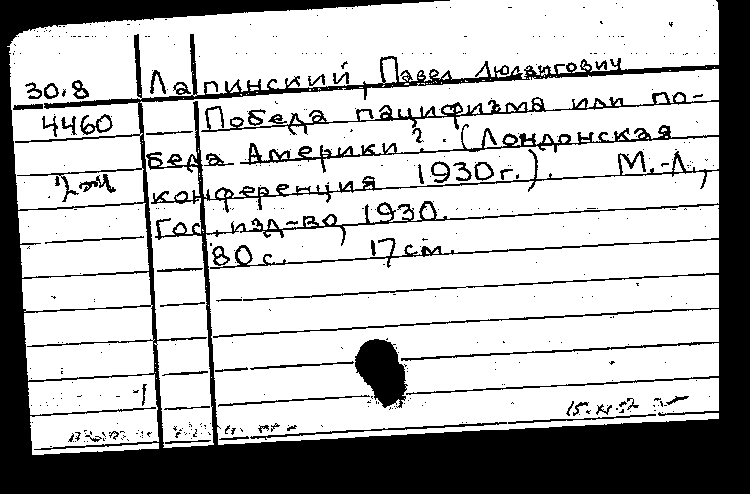 30.8 Лапинский, Павел Людвигович
4460 Победа пацифизма или по-
беда Америки? (Лондонская
конференция 1930г.). М.-Л.,
Гос. изд-во, 1930.
80 с. 17 см.